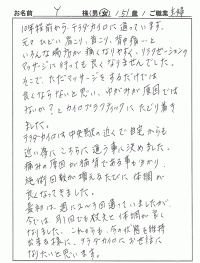 お名前 Y 様(男・女) / 51歳 / ご職業 主婦
10年程前から、テラダカイロに通っています。
元々ひどい肩こり、首こり、背中痛…と
いろんな場所が痛くなりやすく、リラクゼーションや
マッサージに行っても良くなりませんでした。
そこで、ただマッサージをするだけでは
良くならないと思い、ゆがみが原因では
ないか?とカイロプラクティックにたどり着き
ました。
テラダカイロは中央駅の近くで自宅からも
近い為、こちらに通う事に決めました。
痛みの原因が猫背である事もわかり、
施術回数が増えるたびに体調が
良くなってきました。
最初は週に2〜3回通っていましたが、
今では月1回でも充分と体調が良く
なりました。これからも、今の状態を維持
出来る様に、テラダカイロにお世話に
なりたいと思います。